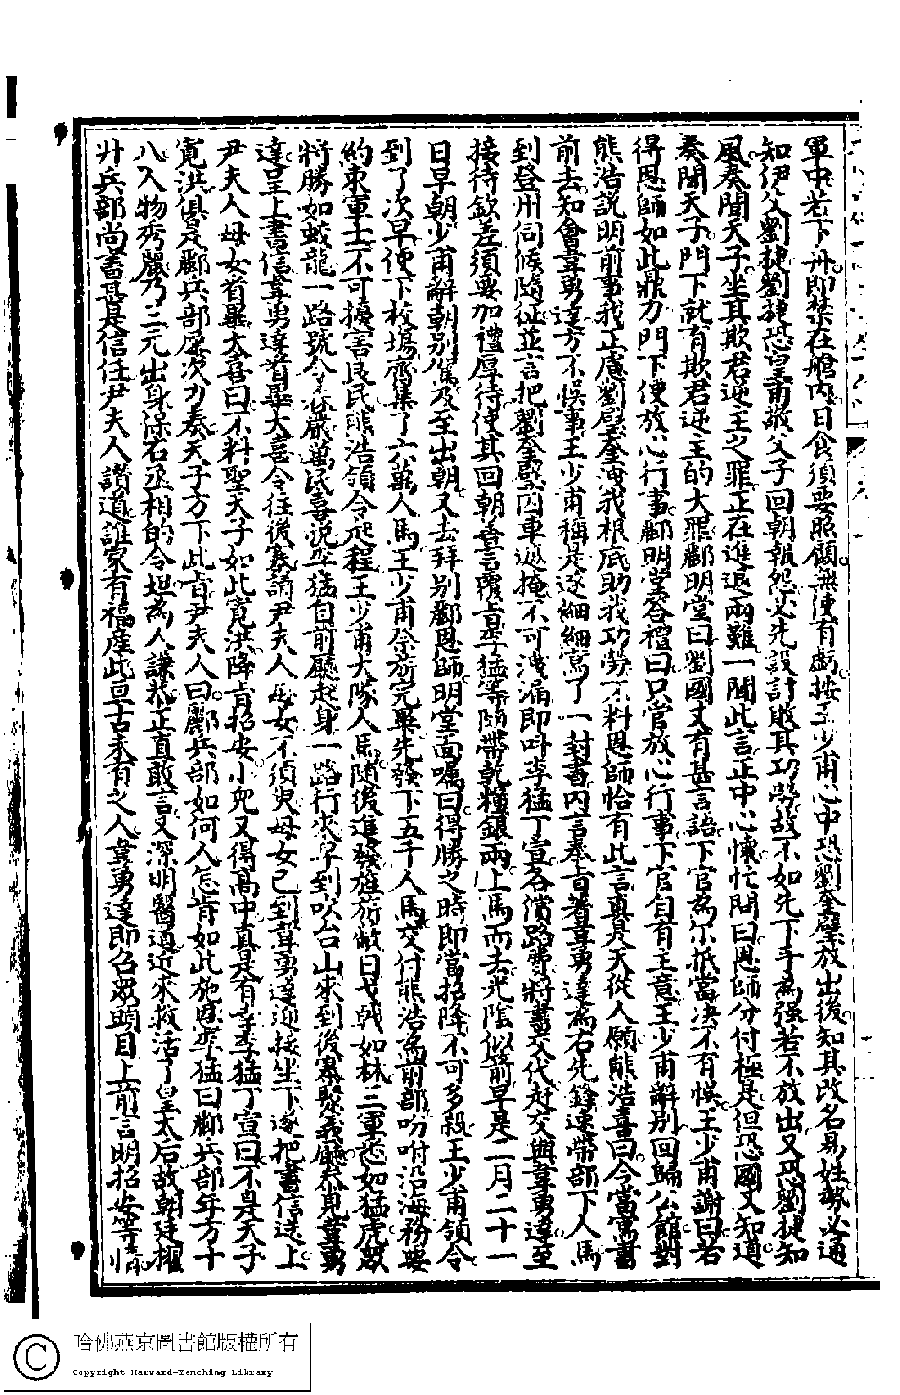 軍中若下舟即禁在艙內日食須要照顧無使有虧按王少甫心中恐劉奎璧放出後知其改名易姓勢必通
知伊父劉捷劉捷恐皇甫敬父子回朝報怨必先設計敗其功勞故不如先下手為強若不放出又恐劉捷知
風奏聞天子坐其欺君逆主之罪正在進退兩難一聞此言正中心懷忙問曰恩師分付極是但恐國丈知道
奏聞天子門下就有欺君逆主的大罪酈明堂曰劉國丈有甚言語下官為尔抵當决不有悞王少甫謝曰若
得恩師如此鼎力門下便放心行事酈明堂答禮曰只管放心行事下官自有主意王少甫辭別回歸公館對
熊浩說明前事我正慮劉奎璧海我根底助我功勞不料恩師恰有此言真是天從人願熊浩喜曰今當寫書
前去知會韋勇達方不悞事王少甫稱是遂細細寫了一封書內言奉旨著韋勇達為右先鋒速帶部下人馬
到登州伺候隨征並言把劉奎璧囚車遮掩不可洩漏即叫李猛丁宣各償路費將書交代赶交與韋勇達至
接待欽差須要加禮厚待使其回朝善言覆旨李猛等隨帶乾糧銀兩上馬而去光陰似箭早是二月二十一
日早朝少甫辭朝別駕及至出朝又去拜別酈恩師明堂面囑曰得勝之時即當招降不可多殺王少甫領令
到了次早便下校場齊集了六萬人馬王少甫祭旂完畢先發下五千人馬交付熊浩為前部吩咐沿海務要
約束軍士不可擾害良民熊浩領令起程王少甫大隊人馬隨後進發旌旂敝日戈戟如林三軍恁如猛虎眾
將勝如蛟龍一路號令森嚴萬民喜悅李猛自前廳起身一路行來早到吹台山來到後寨聚義廳叅見韋勇
達呈上書信韋勇達看畢大喜令往後寨請尹夫人母女不須臾母女已到韋勇達迎接坐下遂把書信送上
尹夫人母女看畢大喜曰不料聖天子如此寬洪降旨招安小兒又得高中真是有幸李猛丁宣曰不是天子
寬洪俱是酈兵部屢次力奏天子方下此旨尹夫人曰酈兵部如何人怎肯如此施恩李猛曰酈兵部年方十
八人物秀麗乃三元出身係右丞相的令坦為人謙恭正直敢言又深明醫道近來救活了皇太后故朝廷擢
廾兵部尚書甚是信任尹夫人讃道誰家有福產此亘古未有之人韋勇達即召眾頭目上前言明招安等情
哈佛燕京圖書館版權所有
Copyright Harvard-Yenching Library